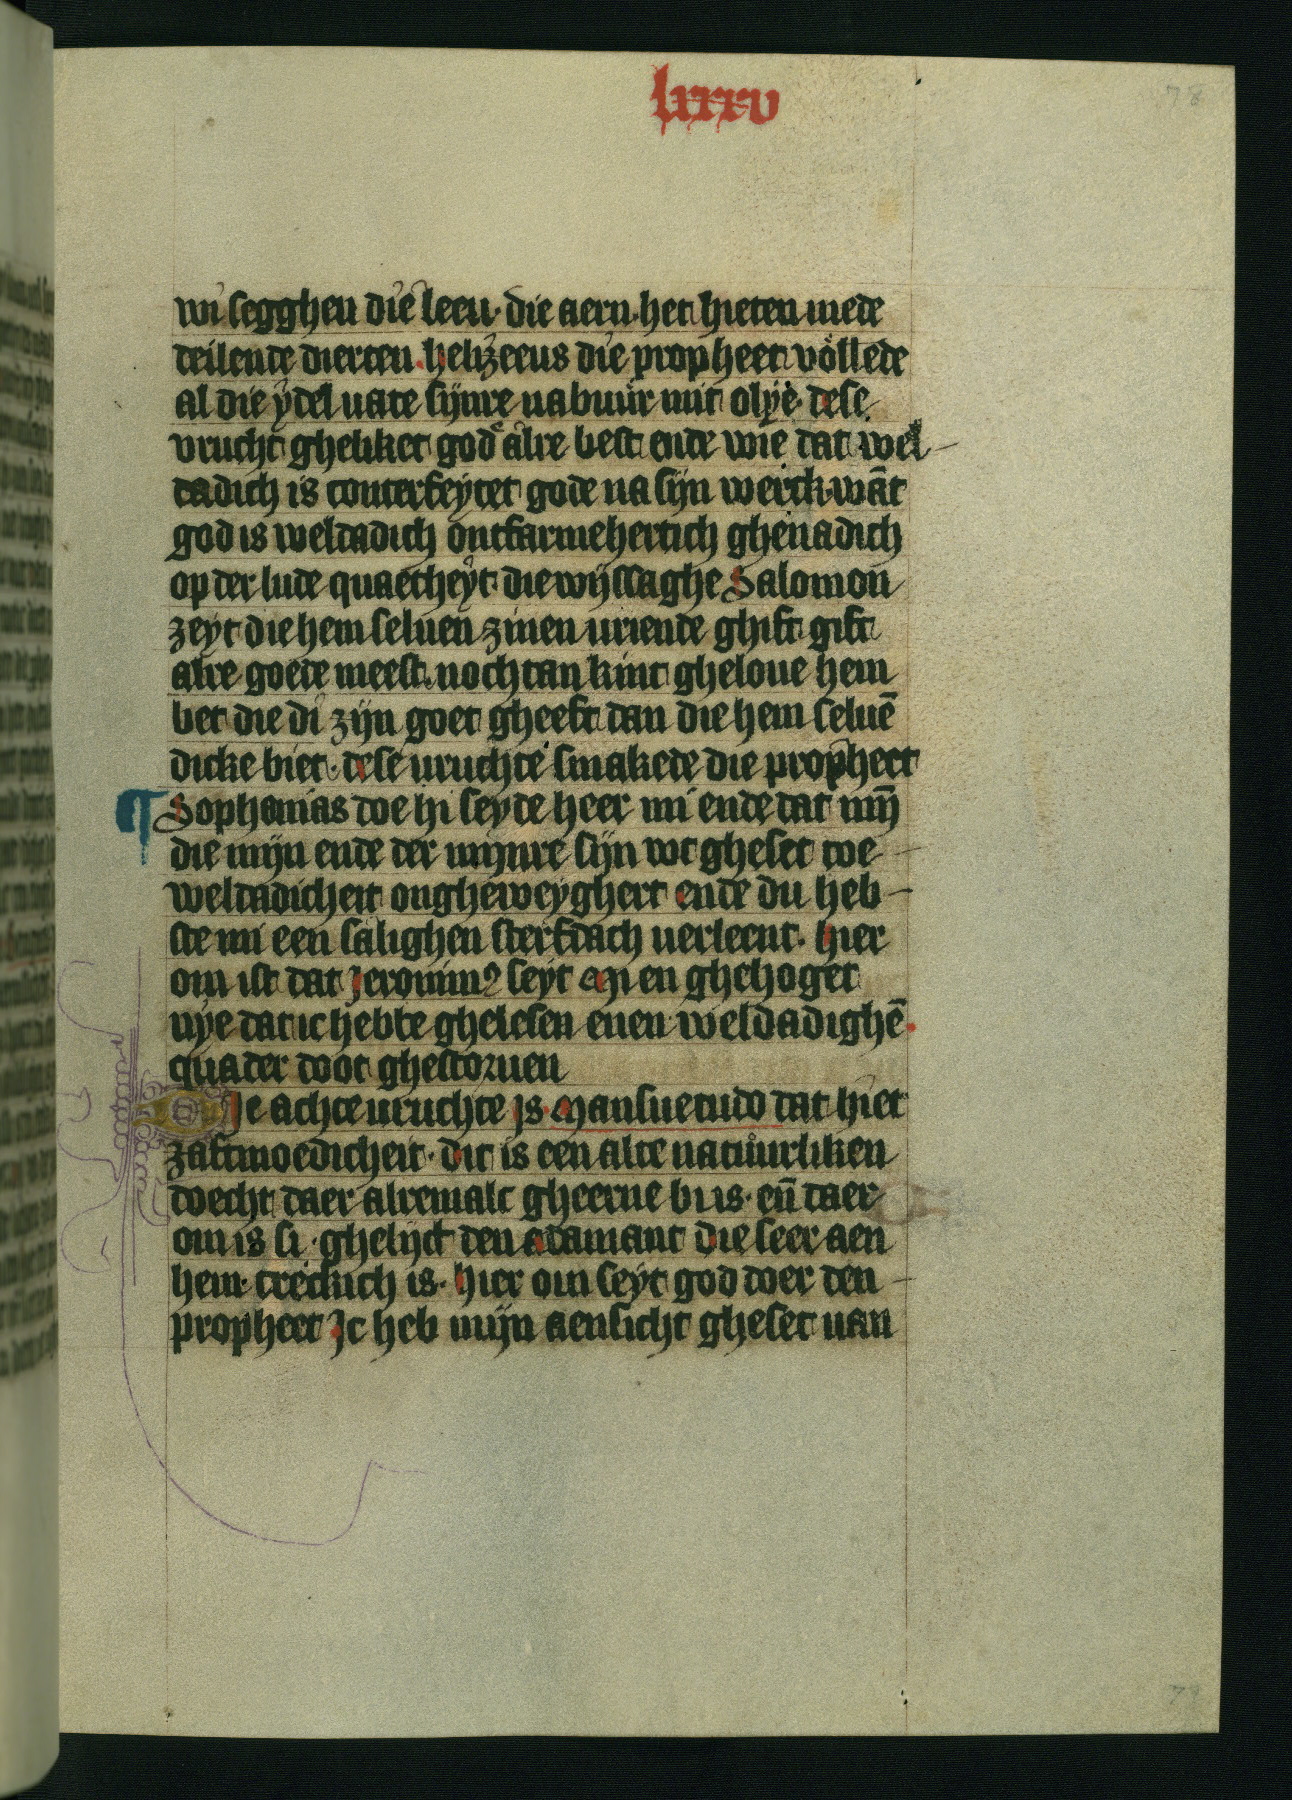 lxxxv
78
wi segghen die leen· die aern· het hieten mede
teilende dierten. helyzeeus die propheet völlede
al die ydel uate sijnre nabuur mit olye· dese
vrucht gheliket gode alre best ende wie dat wel
dadich is conterfeytet gode na sijn werck· wāt
god is weldadich ontfarmehertich ghenadich
op der lude quaetheyt· die wijssaghe Salomon
zeyt die hem seluen zinen vriende ghift gift
alre goede meest. nochtan kint gheloue hem
bet die di zijn goet gheeft dan die hem seluē
dicke biet· dese vruchte smakede die propheet
¶ Sophonias doe hi seyde heer mi ende dat mijn
die mijn ende der mijnre sijn wt gheset toe
weldadicheit ongheweyghert ende du heb
ste mi een salighen sterfdach verleent· hier
om ist dat Jeronimꝰ seyt Mi en ghehoget
nye dat ic hebbe ghelesen enen weldadighē
quader doot ghestoruen
Die achte vruchte Is· Mansuetudo dat hiet
zaftmoedicheit· dit is een alte natuurliken
doecht daer alremalc gheerne bi is· eñ daer
om is si· ghelijct den adamant die seer aen
hem· treckich is· hier om seyt god doer den
propheet Ic heb mijn aensicht gheset van